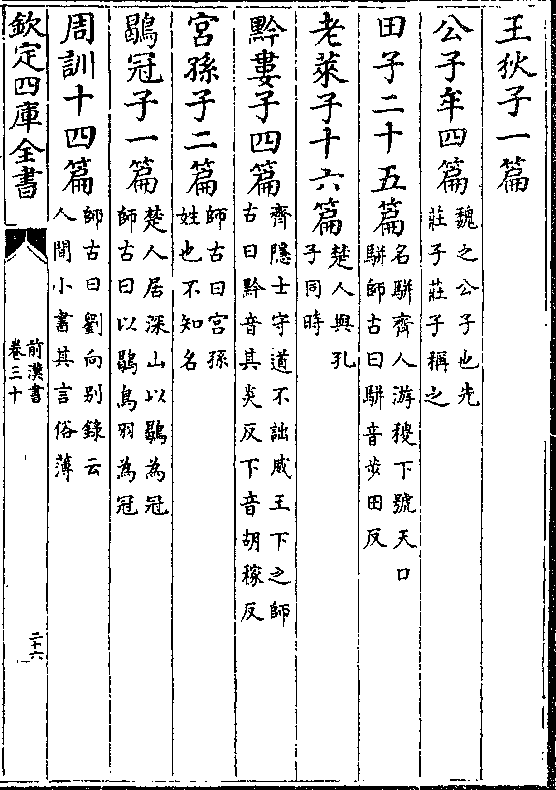 王狄子一篇
公子牟四篇魏之公子也先莊子莊子稱之
田子二十五篇名駢齊人游稷下號天口駢師古曰駢音步田反
老萊子十六篇楚人與孔子同時
黔婁子四篇齊隱士守道不詘威王下之師古曰黔音其炎反下音胡稼反
宮孫子二篇師古曰宮孫姓也不知名
鶡冠子一篇楚人居深山以鶡為冠師古曰以鶡鳥羽為冠
周訓十四篇師古曰劉向别錄云人間小書其言俗薄
欽定四庫全書
前漢書
卷三十
二十六